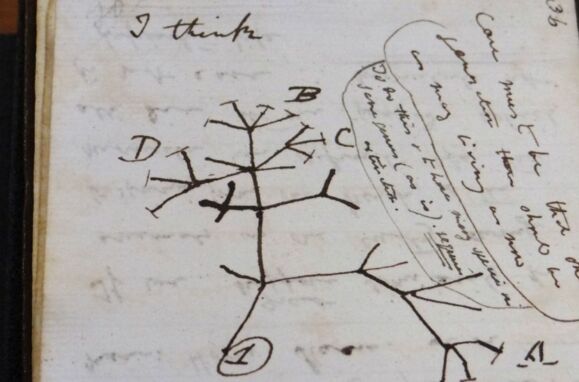 36
I think
Case must be that
generation then should be
as many living as now
To do this & to have many species in
same genus (as is) requires
extinction.
B
C
D
A
1